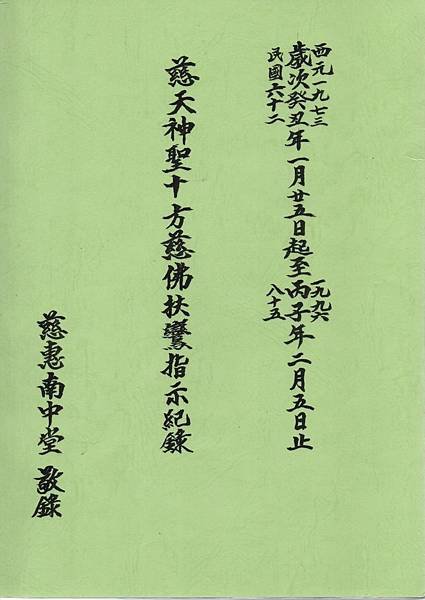 西元一九七三
民國六十二
歲次癸丑年一月廿五日起至丙子年二月五日止
一九九六
八十五
慈天神聖十方慈佛扶鸞指示紀錄
慈惠南中堂 敬錄